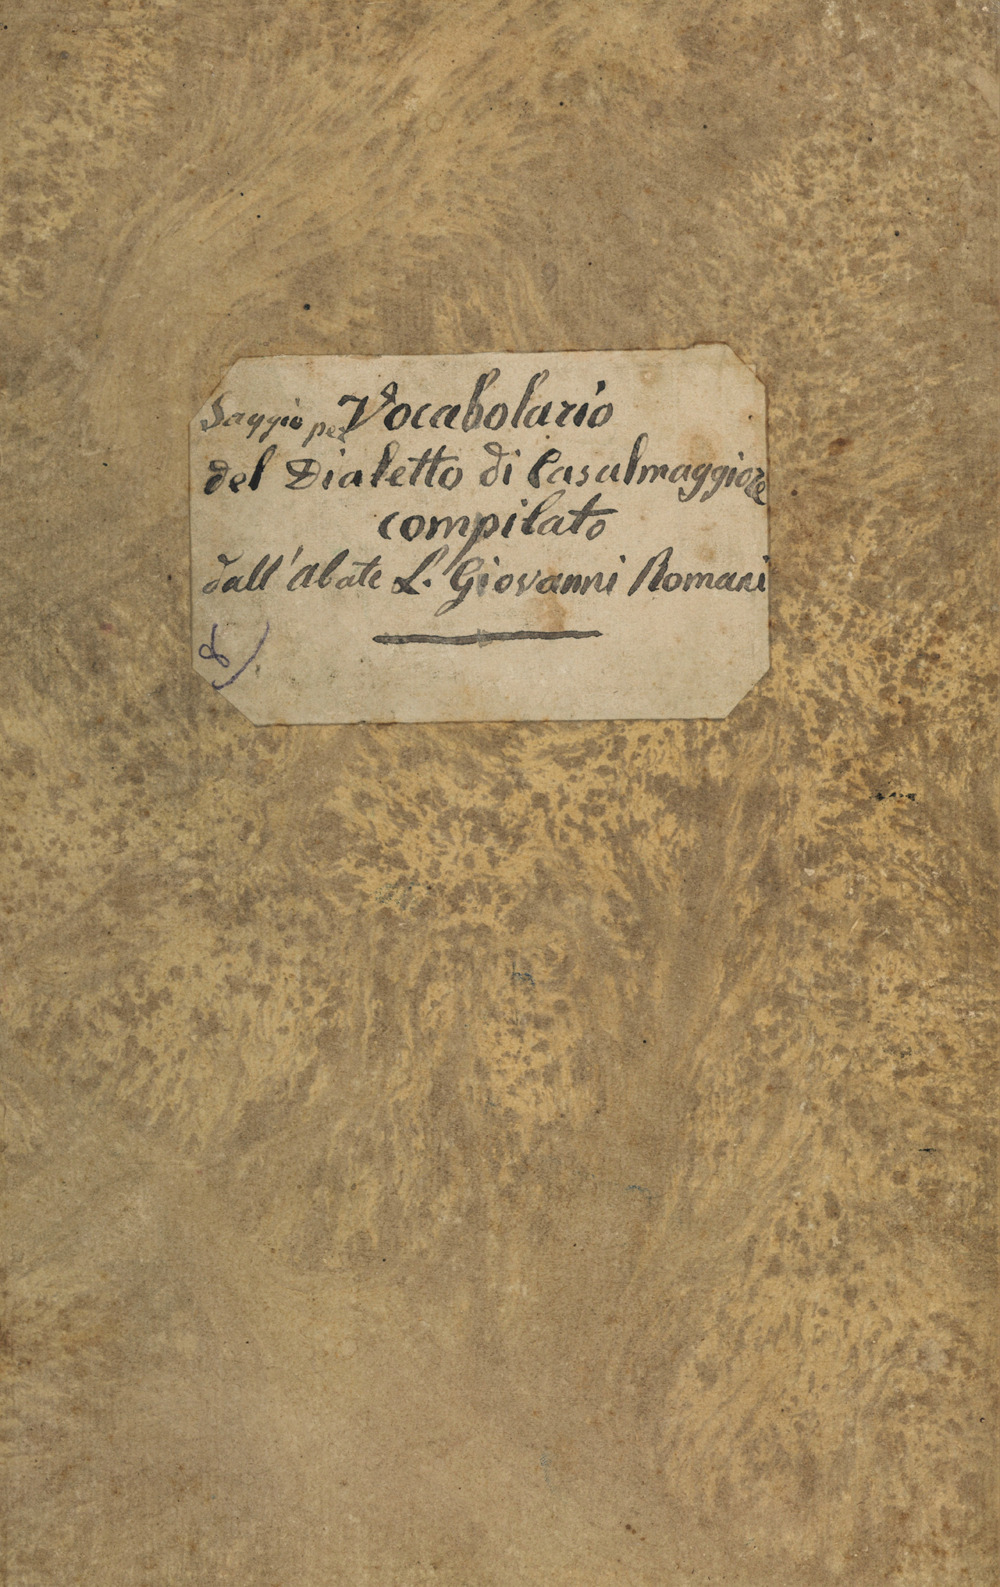 Saggio per Vocabolario
del Dialetto di Casalmaggiore
compilato
dall'Abate L. Giovanni Romani
8)